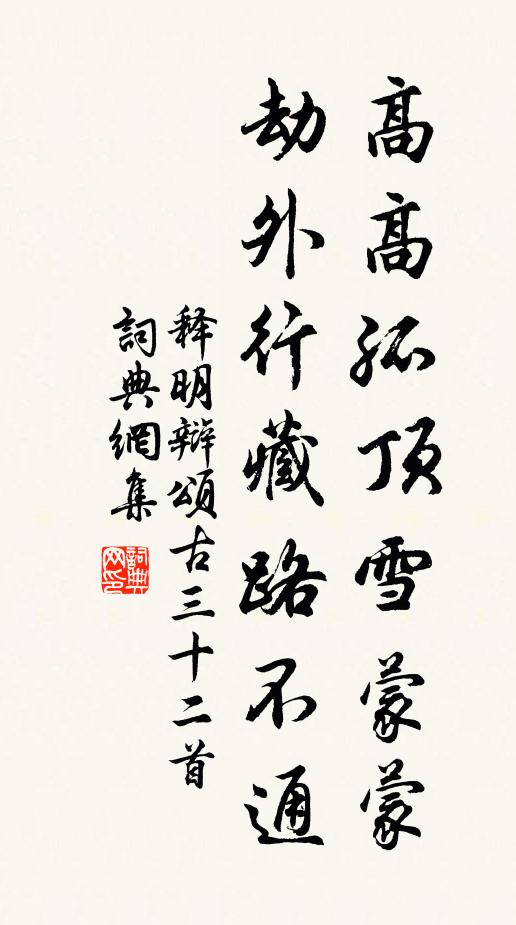 高高孤顶雪蒙蒙
劫外行藏路不通
释明辩颂古三十二首
詞典網集
詞典
网印